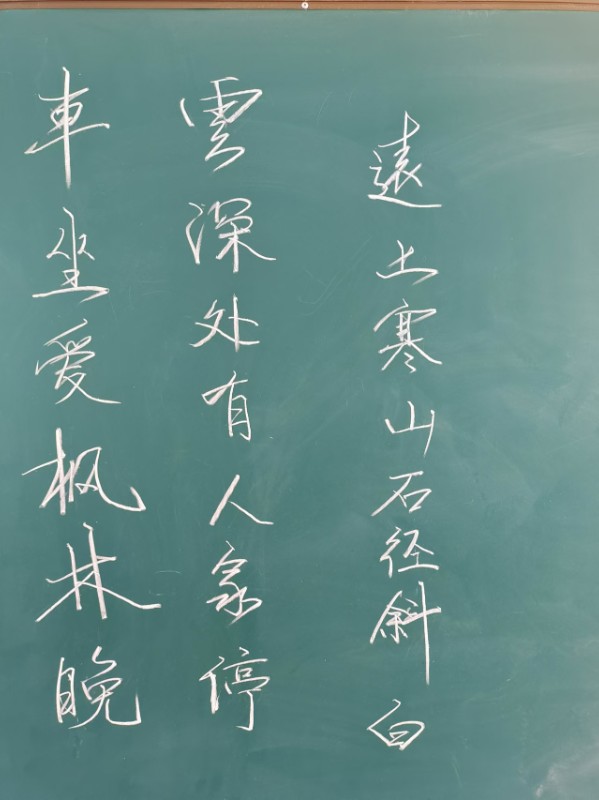 遠上寒山石径斜白
雲深处有人家停
車坐愛枫林晚